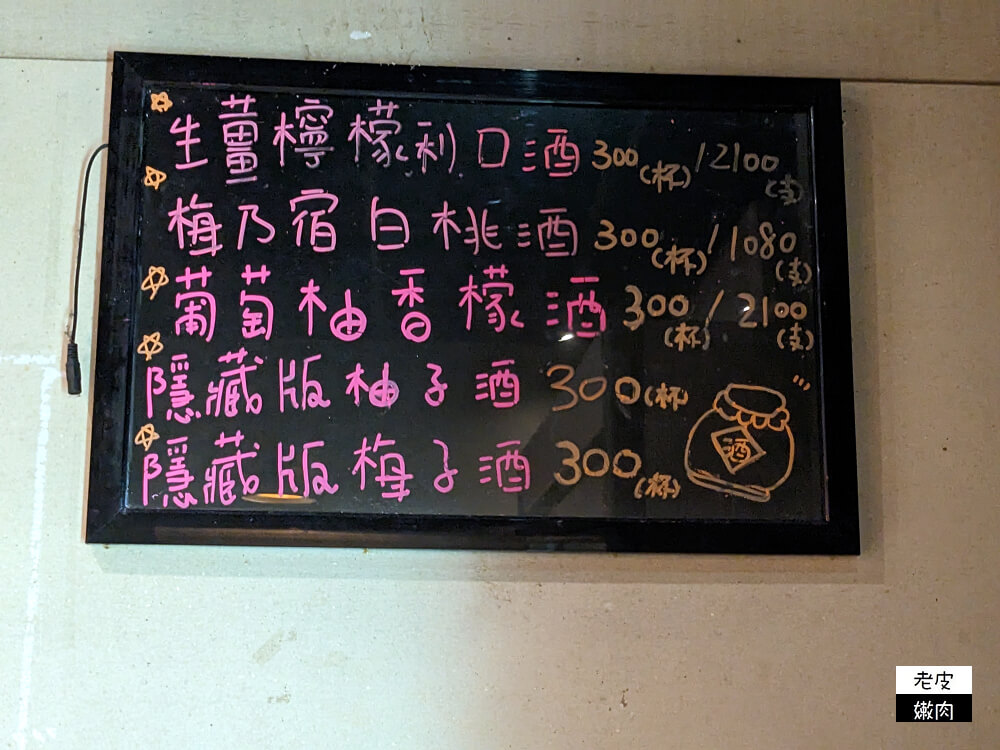 生薑檸檬利口酒 300(杯)/2100(支)
梅乃宿白桃酒 300(杯)/1080(支)
葡萄柚香檬酒 300(杯)/2100(支)
隱藏版柚子酒 300(杯)
隱藏版梅子酒 300(杯)
酒
老皮
嫩肉